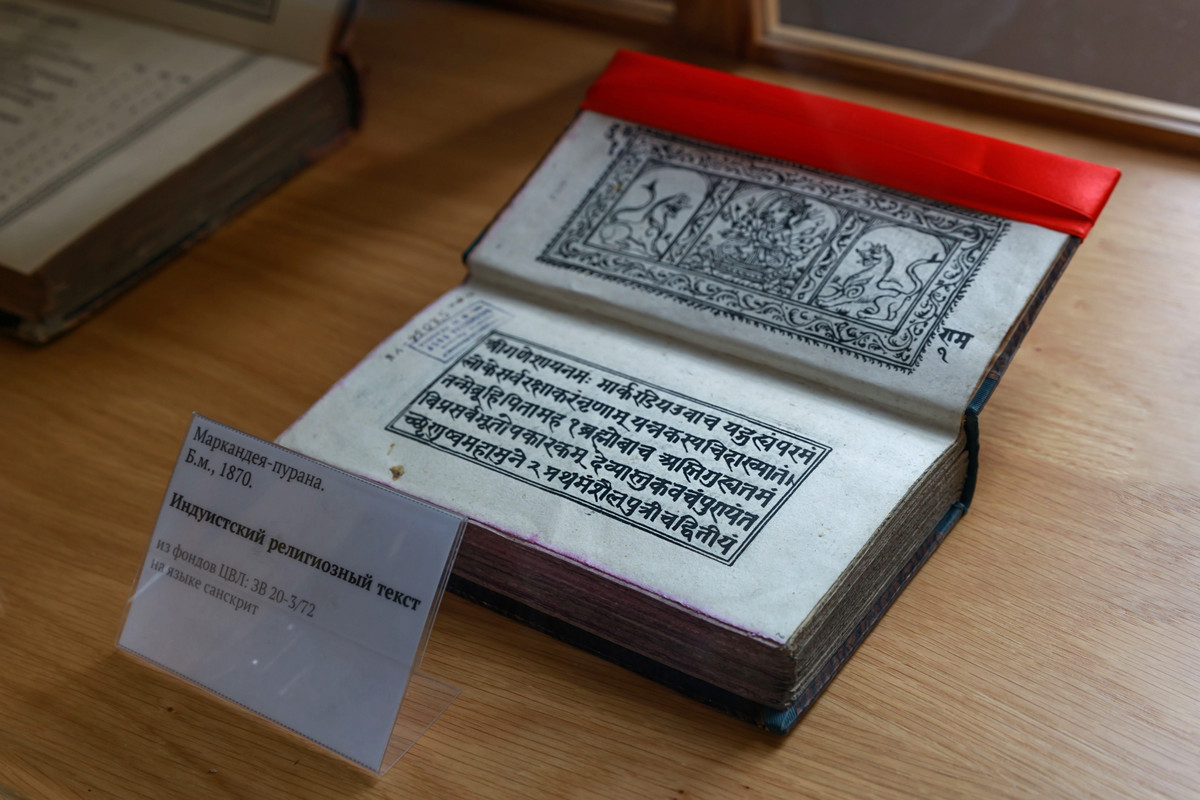 राम
श्रीगणेशायनमः मार्कंरडेयउवाच यद्गुह्यंपरमं
लोकेसर्वरक्षाकरंनृणाम् यन्नकस्यचिदाख्यातं
तन्मेब्रूहिपितामह १ ब्रह्मोवाच अस्तिगुह्यतमं
विप्रसर्वभूतोपकारकम् देव्यास्तुकवचंपुरायंत
च्छृणुष्वमहामुने २ प्रथमंशैलपुत्रीचद्वितीयं
Маркандея-пурана.
Б.м., 1870.
Индуистский религиозный текст
из фондов ЦВЛ: ЗВ 20-3/72
на языке санскрит